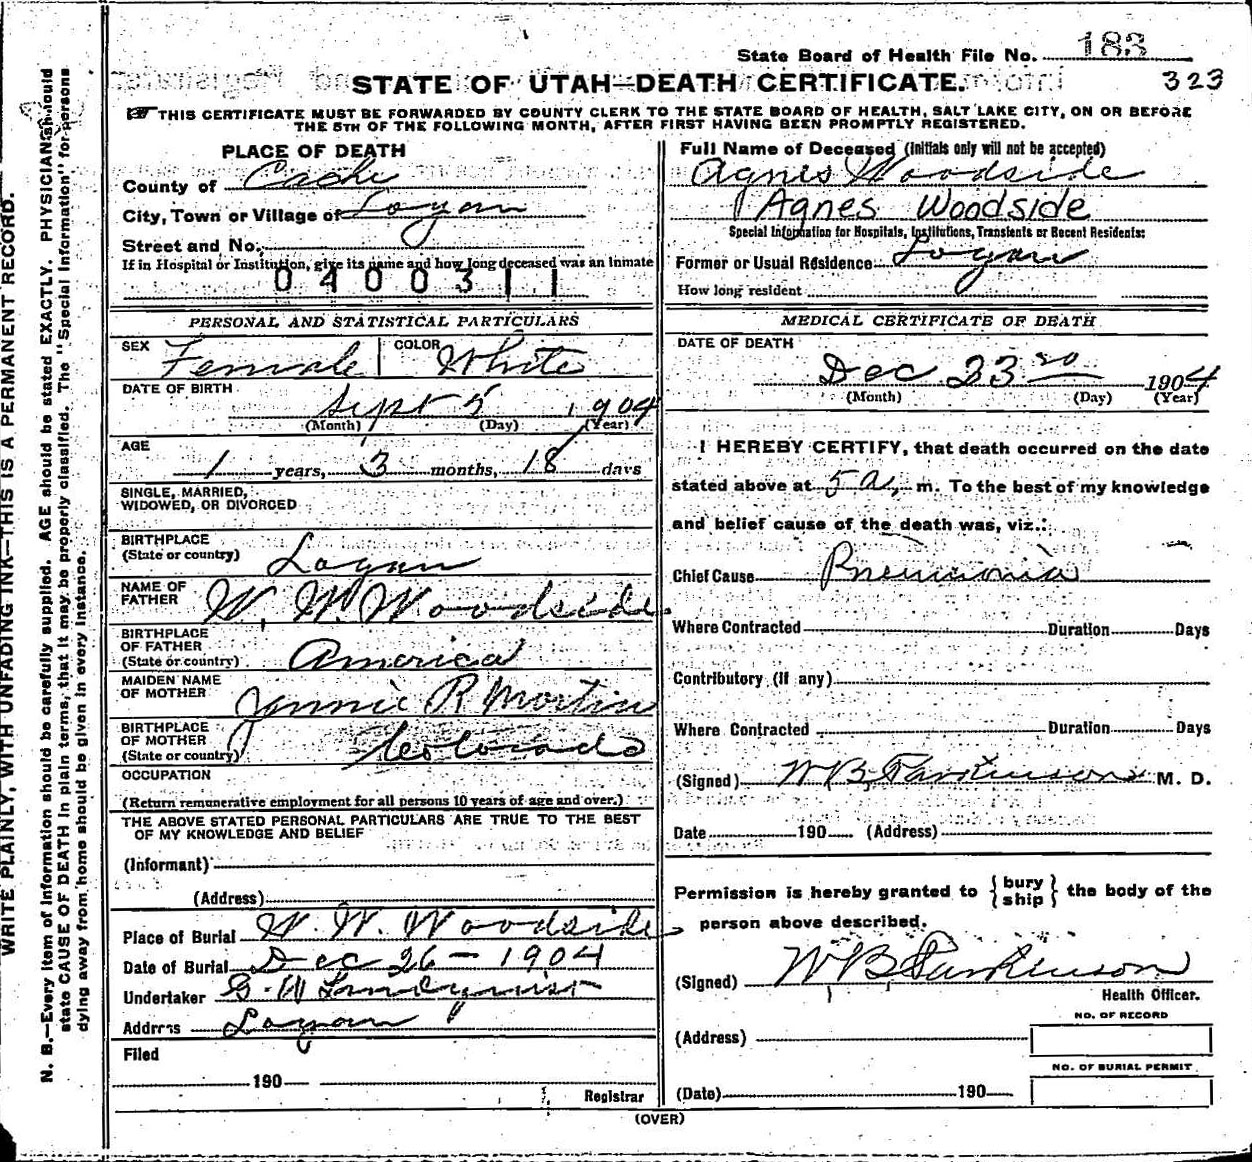 State Board of Health File No. 183
STATE OF UTAH—DEATH CERTIFICATE.
323
THIS CERTIFICATE MUST BE FORWARDED BY COUNTY CLERK TO THE STATE BOARD OF HEALTH, SALT LAKE CITY, ON OR BEFORE
THE 5TH OF THE FOLLOWING MONTH, AFTER FIRST HAVING BEEN PROMPTLY REGISTERED.
PLACE OF DEATH
County of Cache
City, Town or Village of Logan
Street and No.
If in Hospital or Institution, give its name and how long deceased was an inmate
0400311
Full Name of Deceased (Initials only will not be accepted)
Agnes Woodside
Agnes Woodside
Special Information for Hospitals, Institutions, Transients or Recent Residents:
Former or Usual Residence Logan
How long resident
PERSONAL AND STATISTICAL PARTICULARS
SEX Female COLOR White
DATE OF BIRTH
Sept 5, 1904
(Month) (Day) (Year)
AGE
1 years, 3 months, 18 days
SINGLE, MARRIED,
WIDOWED, OR DIVORCED
BIRTHPLACE
(State or country) Logan
NAME OF
FATHER W. W. Woodside
BIRTHPLACE
OF FATHER
(State or country) America
MAIDEN NAME
OF MOTHER Jennie R Martin
BIRTHPLACE
OF MOTHER
(State or country) Colorado
OCCUPATION
(Return remunerative employment for all persons 10 years of age and over.)
THE ABOVE STATED PERSONAL PARTICULARS ARE TRUE TO THE BEST
OF MY KNOWLEDGE AND BELIEF
(Informant)
(Address)
Place of Burial W. W. Woodside
Date of Burial Dec 26 - 1904
Undertaker Lindquist
Address Logan
Filed
190
Registrar
MEDICAL CERTIFICATE OF DEATH
DATE OF DEATH
Dec 23 1904
(Month) (Day) (Year)
I HEREBY CERTIFY, that death occurred on the date
stated above at 5 a. m. To the best of my knowledge
and belief cause of the death was, viz.:
Chief Cause Pneumonia
Where Contracted Duration Days
Contributory (if any)
Where Contracted Duration Days
(Signed) W B Parkinson M. D.
Date 190 (Address)
Permission is hereby granted to {bury
ship} the body of the
person above described.
(Signed) W B Parkinson
Health Officer.
NO. OF RECORD
(Address)
NO. OF BURIAL PERMIT
(Date) 190
(OVER)
WRITE PLAINLY, WITH UNFADING INK—THIS IS A PERMANENT RECORD.
N. B.—Every item of information should be carefully supplied. AGE should be stated EXACTLY. PHYSICIANS should
state CAUSE OF DEATH in plain terms, that it may be properly classified. The "Special Information" for persons
dying away from home should be given in every instance.